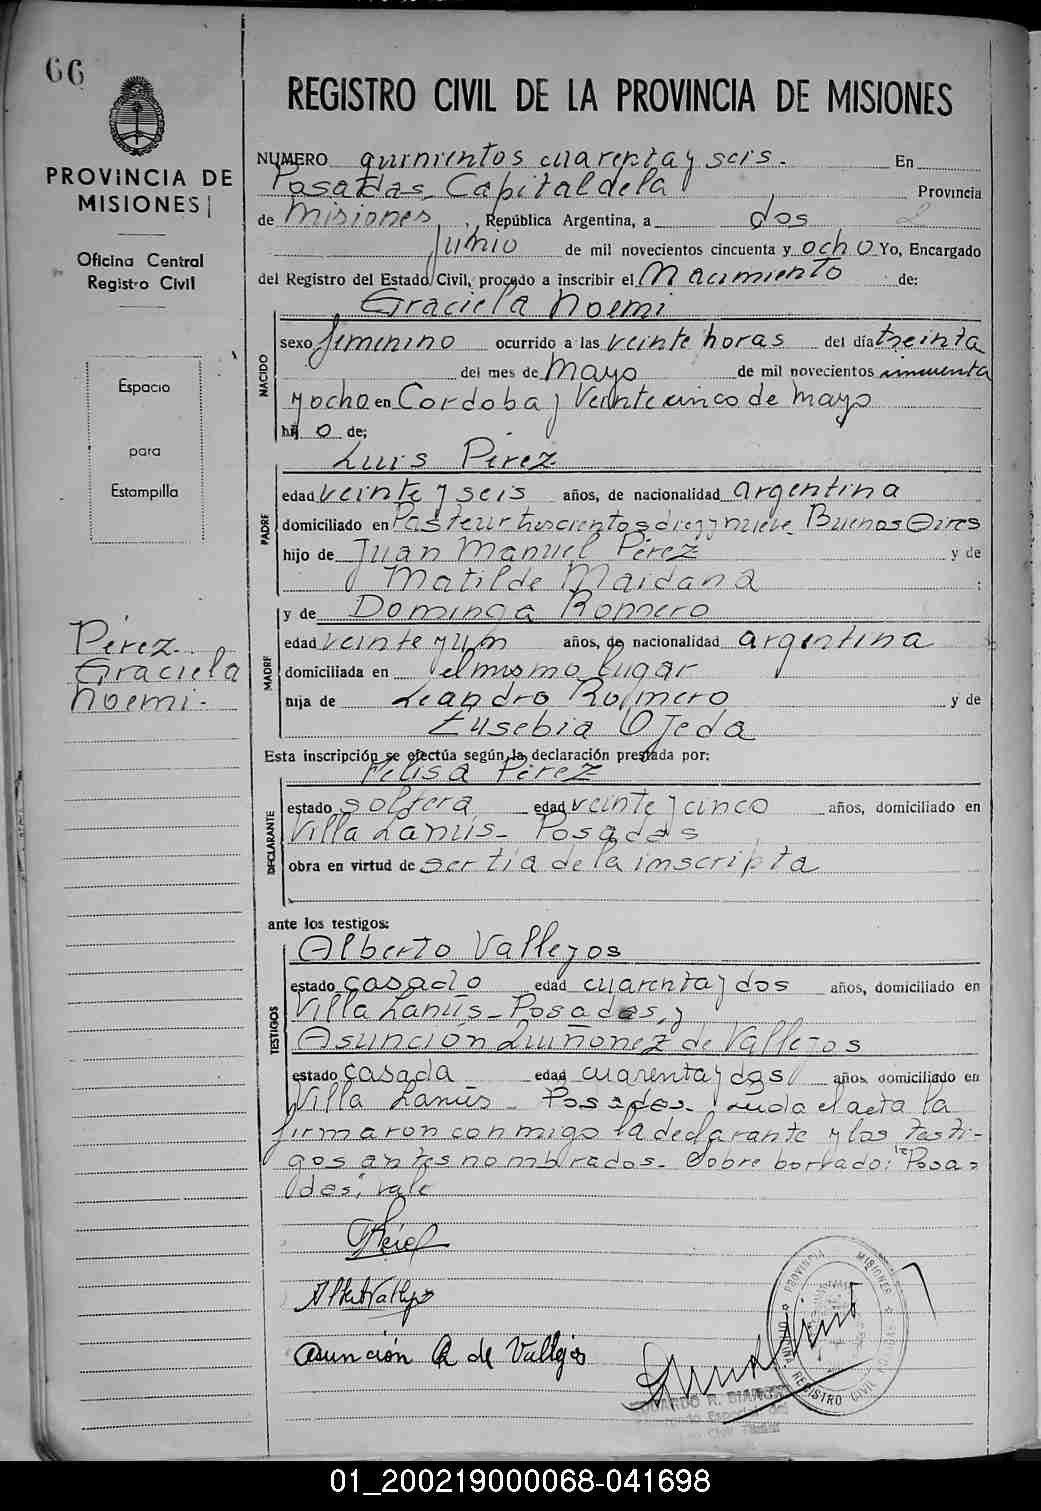 66
REGISTRO CIVIL DE LA PROVINCIA DE MISIONES
PROVINCIA DE
MISIONES
Oficina Central
Registro Civil
Espacio
para
Estampilla
Pérez
Graciela
Noemi.-
NUMERO quinientos cuarenta y seis.- En
Posadas, Capital de la Provincia
de Misiones, República Argentina, a dos 2
Junio de mil novecientos cincuenta y ocho Yo, Encargado
del Registro del Estado Civil, procedo a inscribir el Nacimiento de:
Graciela Noemi
NACIDO
sexo femenino ocurrido a las veinte horas del día treinta
del mes de Mayo de mil novecientos cincuenta
y ocho en Cordoba y Veinticinco de Mayo
hij o de;
Luis Pérez
PADRE
edad veinte y seis años, de nacionalidad argentina
domiciliado en Pasteur trescientos diez y nueve. Buenos Aires
hijo de Juan Manuel Pérez y de
Matilde Maidana
y de Dominga Romero
MADRE
edad veinte y un años, de nacionalidad argentina
domiciliada en el mismo lugar
hija de Leandro Romero y de
Eusebia Ojeda
Esta inscripción se efectúa según la declaración prestada por:
Felisa Pérez
DECLARANTE
estado soltera edad veinte y cinco años, domiciliado en
Villa Lanús - Posadas
obra en virtud de ser tía de la inscripta
ante los testigos:
Alberto Vallejos
TESTIGOS
estado casado edad cuarenta y dos años, domiciliado en
Villa Lanús - Posadas, y
Asunción Quiñonez de Vallejos
estado casada edad cuarenta y dos años, domiciliado en
Villa Lanús - Posadas. Leída el acta la
firmaron conmigo la declarante y los testi-
gos antes nombrados. Sobre borrado: "Posa-
das", vale
FPérez
Alberto Vallejos
Asunción Q de Vallejos
PROVINCIA MISIONES
OFICINA REGISTRO CIVIL POSADAS
EDUARDO R.
01_200219000068-041698